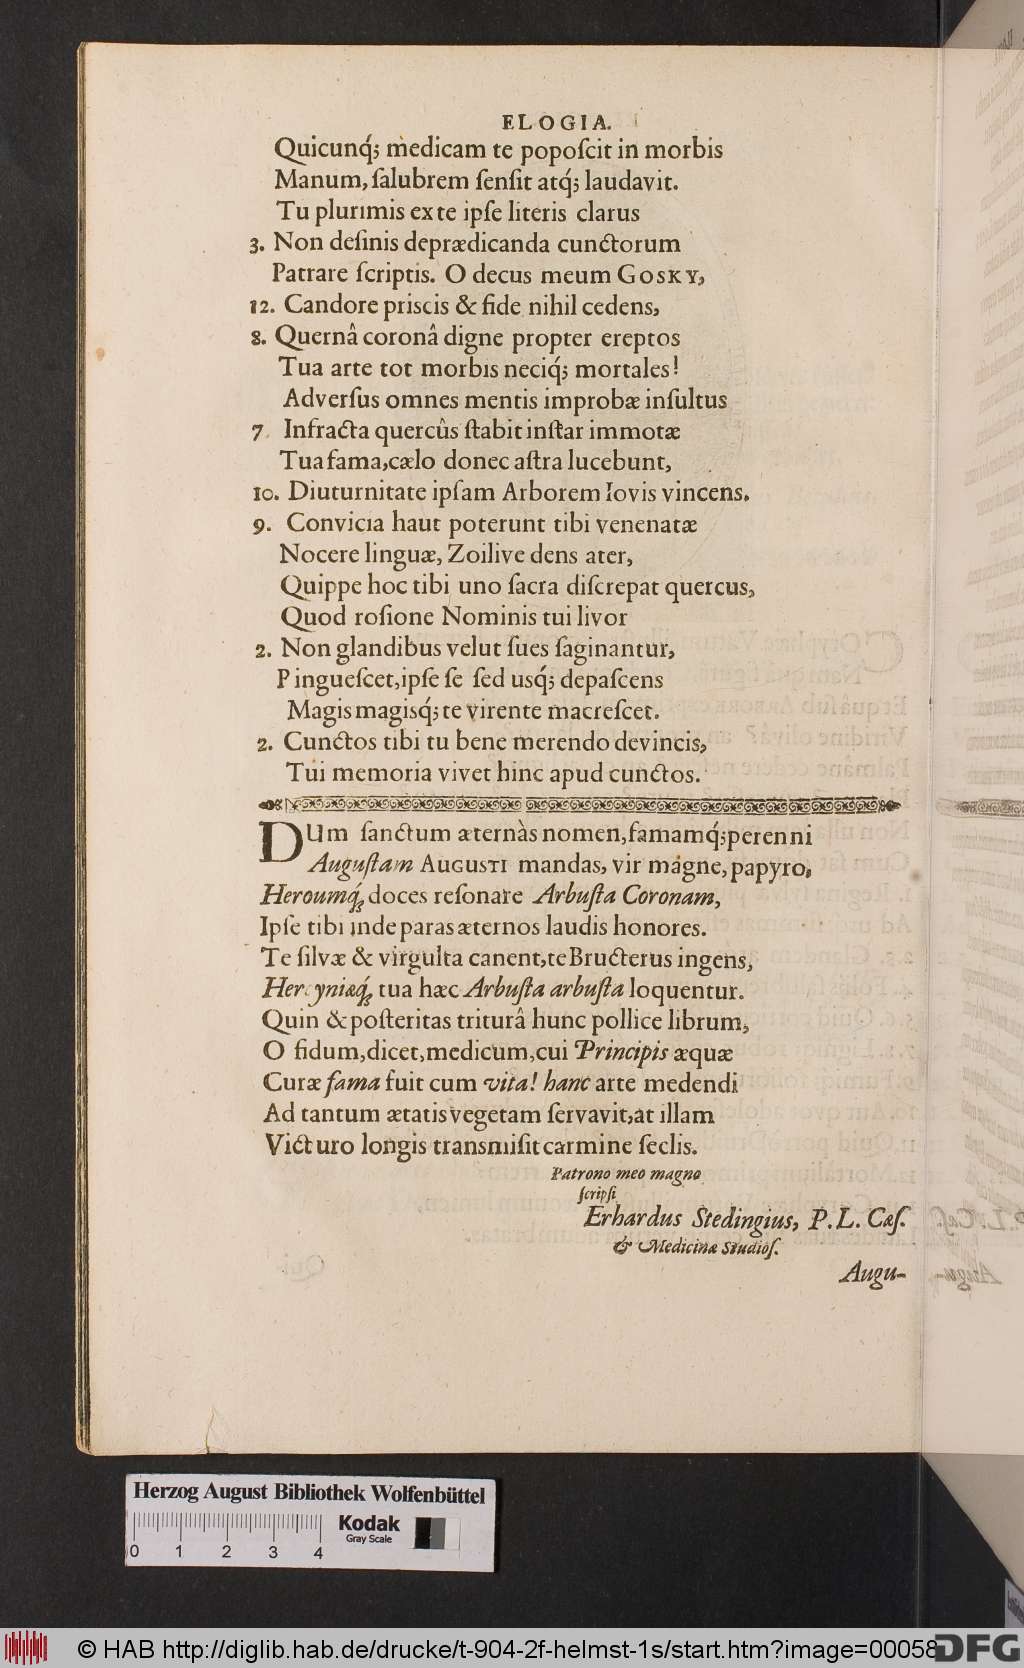 ELOGIA.
Quicunq́; medicam te popoſcit in morbis
Manum, ſalubrem ſenſit atq́; laudavit.
Tu plurimis ex te ipſe literis clarus
3. Non deſinis deprædicanda cunctorum
Patrare ſcriptis. O decus meum GOSKY,
12. Candore priscis & fide nihil cedens,
8. Quernâ coronâ digne propter ereptos
Tua arte tot morbis neciq́; mortales!
Adverſus omnes mentis improbæ inſultus
7. Infracta quercûs ſtabit inſtar immotæ
Tua fama, cælo donec aſtra lucebunt,
10. Diuturnitate ipſam Arborem Iovis vincens.
9. Convicia haut poterunt tibi venenatæ
Nocere linguæ, Zoilive dens ater,
Quippe hoc tibi uno ſacra diſcrepat quercus,
Quod roſione Nominis tui livor
2. Non glandibus velut ſues ſaginantur,
Pingueſcet, ipſe ſe ſed usq́; depaſcens
Magis magisq́; te virente macreſcet.
2. Cunctos tibi tu bene merendo devincis,
Tui memoria vivet hinc apud cunctos.
DUm ſanctum æternàs nomen, famamq́; perenni
Auguſtam AUGUSTI mandas, vir magne, papyro,
Heroumq́; doces reſonare Arbuſta Coronam,
Ipſe tibi inde paras æternos laudis honores.
Te ſilvæ & virgulta canent, te Bructerus ingens,
Hercyniæq́; tua hæc Arbuſta arbuſta loquentur.
Quin & poſteritas triturâ hunc pollice librum,
O fidum, dicet, medicum, cui Principis æquæ
Curæ fama fuit cum vita! hanc arte medendi
Ad tantum ætatis vegetam ſervavit, at illam
Victuro longis transmiſit carmine ſeclis.
Patrono meo magno
ſcripſi
Erhardus Stedingius, P. L. Cæſ.
& Medicinæ Studioſ.
Augu-
Herzog August Bibliothek Wolfenbüttel
Kodak
Gray Scale
0 1 2 3 4
© HAB http://diglib.hab.de/drucke/t-904-2f-helmst-1s/start.htm?image=00058
DFG